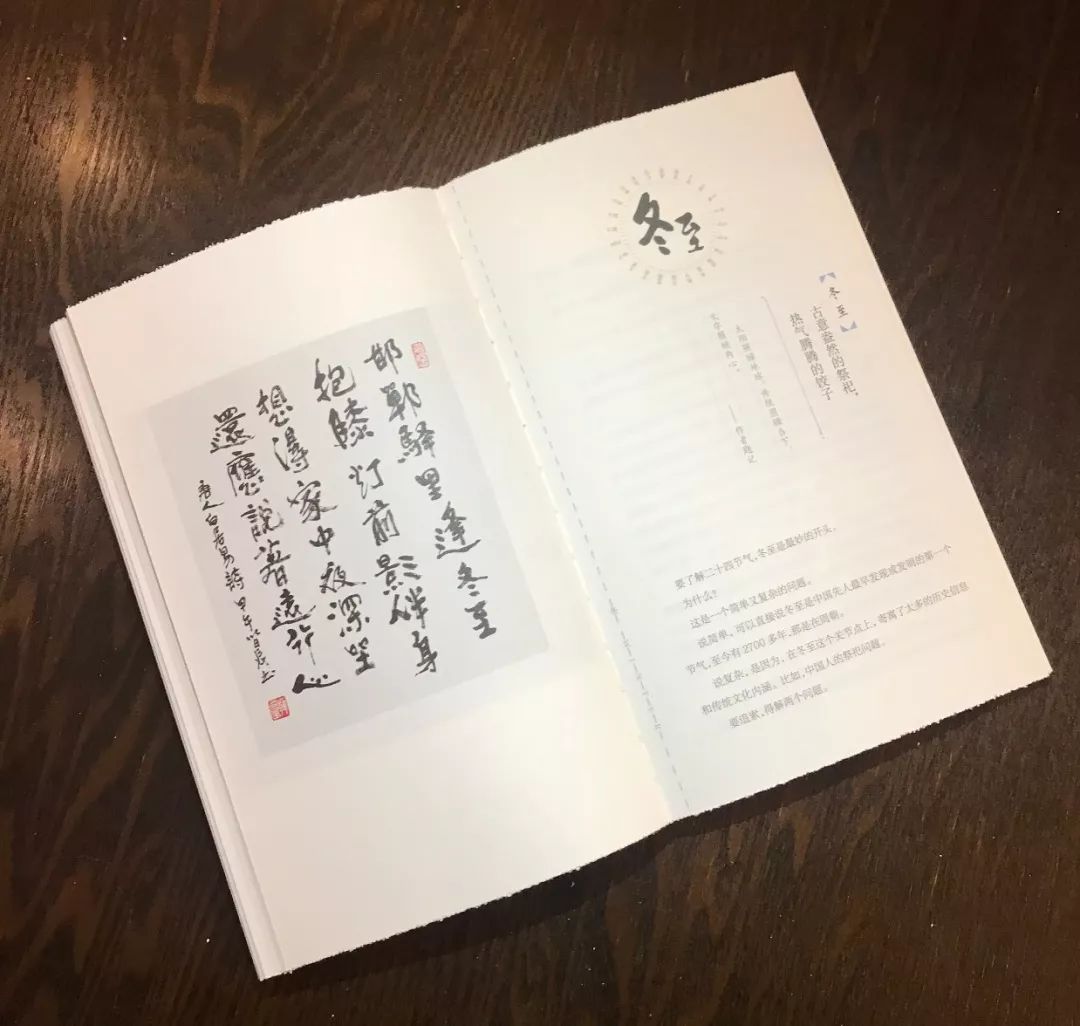 邯鄲驛里逢冬至
抱膝灯前影伴身
想得家中夜深坐
還應說著遠行人
唐人白居易詩 甲午
冬至
冬至
古意盎然的祭祀，
热气腾腾的饺子
——作者题记
要了解二十四节气，冬至是最妙的开头。
为什么？
这是一个简单又复杂的问题。
说简单，可以直接说冬至是中国先人最早发现或发明的第一个
节气，至今有2700多年，那是在周朝。
说复杂，是因为，在冬至这个关节点上，寄寓了太多的历史信息
和传统文化内涵。比如，中国人的祭祀问题。
要追索，得解两个问题。